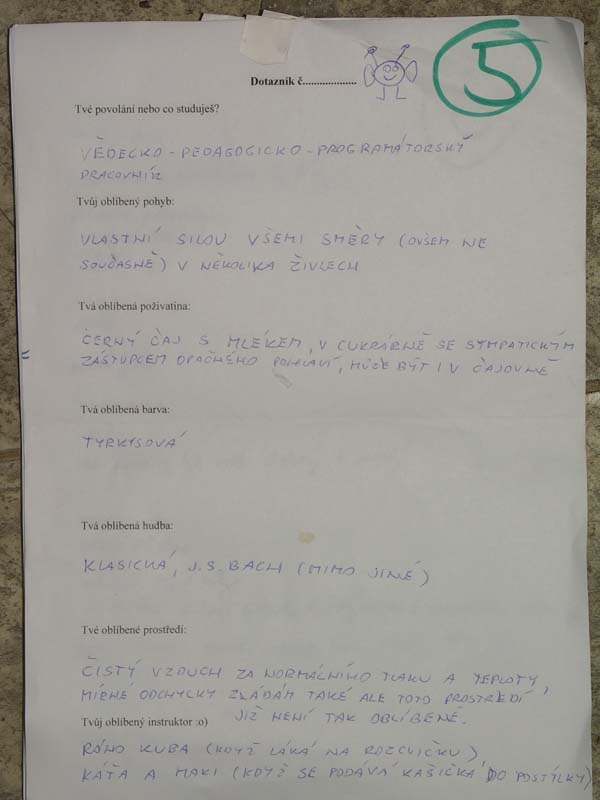 5
Dotazník č...................
Tvé povolání nebo co studuješ?
VĚDECKO - PEDAGOGICKO - PROGRAMÁTORSKÝ
PRACOVNÍK
Tvůj oblíbený pohyb:
VLASTNÍ SILOU VŠEMI SMĚRY (OVŠEM NE
SOUČASNĚ) V NĚKOLIKA ŽIVLECH
Tvá oblíbená poživatina:
ČERNÝ ČAJ S MLÉKEM, V CUKRÁRNĚ SE SYMPATICKÝM
ZÁSTUPCEM OPAČNÉHO POHLAVÍ, MŮŽE BÝT I V ČAJOVNĚ
Tvá oblíbená barva:
TYRKYSOVÁ
Tvá oblíbená hudba:
KLASICKÁ, J.S. BACH (MIMO JINÉ)
Tvé oblíbené prostředí:
ČISTÝ VZDUCH ZA NORMÁLNÍHO TLAKU A TEPLOTY,
MÍRNÉ ODCHYLKY ZVLÁDÁM TAKÉ ALE TOTO PROSTŘEDÍ
JIŽ NENÍ TAK OBLÍBENÉ.
Tvůj oblíbený instruktor :o)
RÁNO KUBA (KDYŽ LÁKÁ NA ROZCVIČKU)
KÁŤA A MAKI (KDYŽ SE PODÁVÁ KAŠIČKA DO POSTÝLKY)